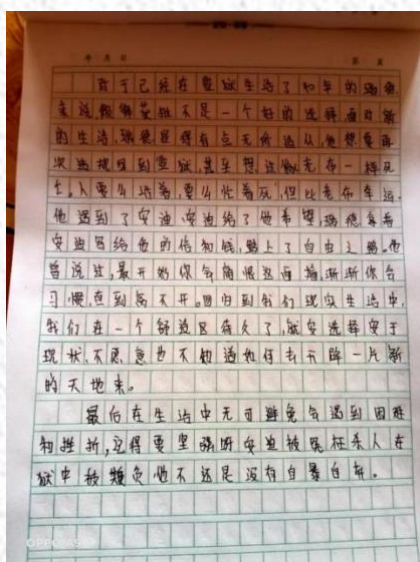 年 月 日 第 页
对于已经在监狱生活了40年的瑞德
来说假释出狱不是一个好的选择面对新
的生活,瑞德显得有点无所适从,他想要再
次违规回到监狱,甚至想过像老布一样死
去。人要么活着,要么忙着死,但比老布幸运,
他遇到了安迪,安迪给了他希望,瑞德拿着
安迪留给他的信和钱,踏上了自由之路。他
曾说过,最开始你会痛恨这面墙,渐渐你会
习惯,直到离不开。回归到我们现实生活中,
我们在一个舒适区待久了,就会选择安于
现状,不愿意也不知道如何去开辟一片新
的天地来。
最后在生活中无可避免会遇到困难
和挫折,记得要坚强即安迪被冤枉杀人在
狱中被欺负他不还是没有自暴自弃。